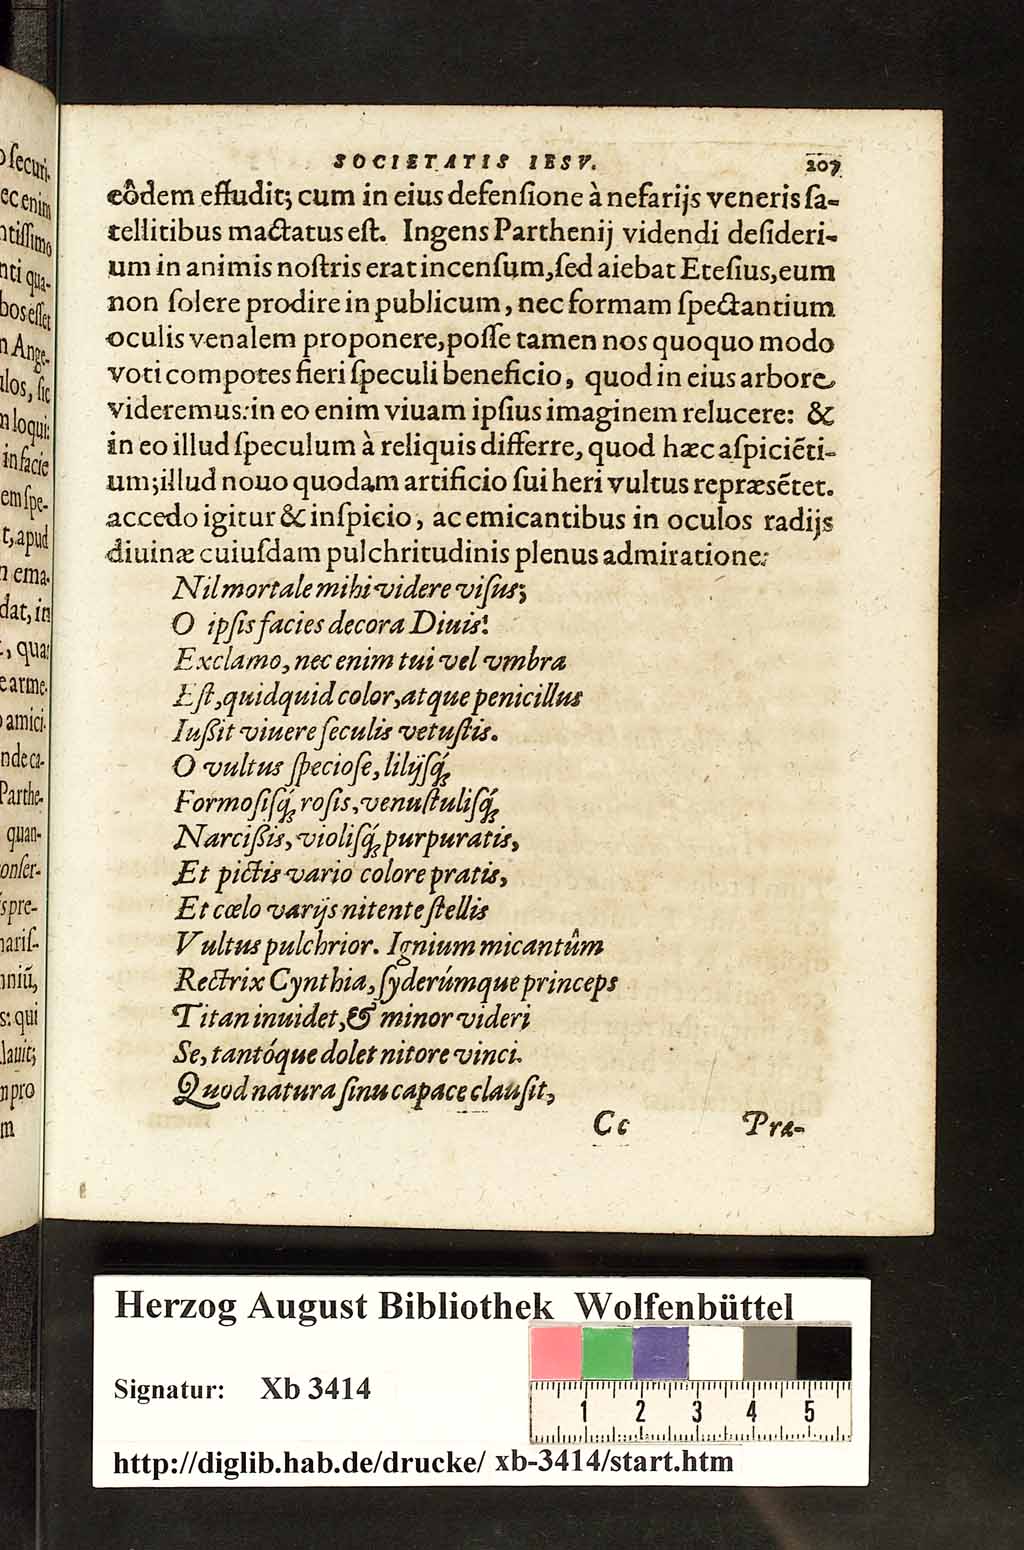 SOCIETATIS IESV. 207
eôdem effudit; cum in eius defenſione à nefarijs veneris ſa-
tellitibus mactatus eſt. Ingens Parthenij videndi deſideri-
um in animis noſtris erat incenſum, ſed aiebat Eteſius, eum
non ſolere prodire in publicum, nec formam ſpectantium
oculis venalem proponere, poſſe tamen nos quoquo modo
voti compotes fieri ſpeculi beneficio, quod in eius arbore
videremus: in eo enim viuam ipſius imaginem relucere: &
in eo illud ſpeculum à reliquis differre, quod hæc aſpiciẽti-
um; illud nouo quodam artificio ſui heri vultus repræsẽtet.
accedo igitur & inſpicio, ac emicantibus in oculos radijs
diuinæ cuiuſdam pulchritudinis plenus admiratione:
Nil mortale mihi videre viſus;
O ipſis facies decora Diuis!
Exclamo, nec enim tui vel vmbra
Eſt, quidquid color, atque penicillus
Iußit viuere ſeculis vetuſtis.
O vultus ſpecioſe, lilijſq́;
Formoſiſq́; roſis, venuſtuliſq́;
Narcißis, violiſq́; purpuratis,
Et pictis vario colore pratis,
Et cœlo varijs nitente ſtellis
Vultus pulchrior. Ignium micantûm
Rectrix Cynthia, ſyderúmque princeps
Titan inuidet, & minor videri
Se, tantóque dolet nitore vinci.
Quod natura ſinu capace clauſit,
Cc Præ-
o ſecuri-
ec enim
ntiſſimo
nti qua-
bos eſſet
n Ange-
ulos, ſic
n loqui:
in facie
em ſpe-
t, apud
n ema-
dat, in
, qua:
e arme-
o amici-
nde ca-
Parthe-
quan-
onſer-
s pre-
nariſ-
nniũ,
s: qui
lauit;
n pro
m
Herzog August Bibliothek Wolfenbüttel
Signatur: Xb 3414
1 2 3 4 5
http://diglib.hab.de/drucke/ xb-3414/start.htm